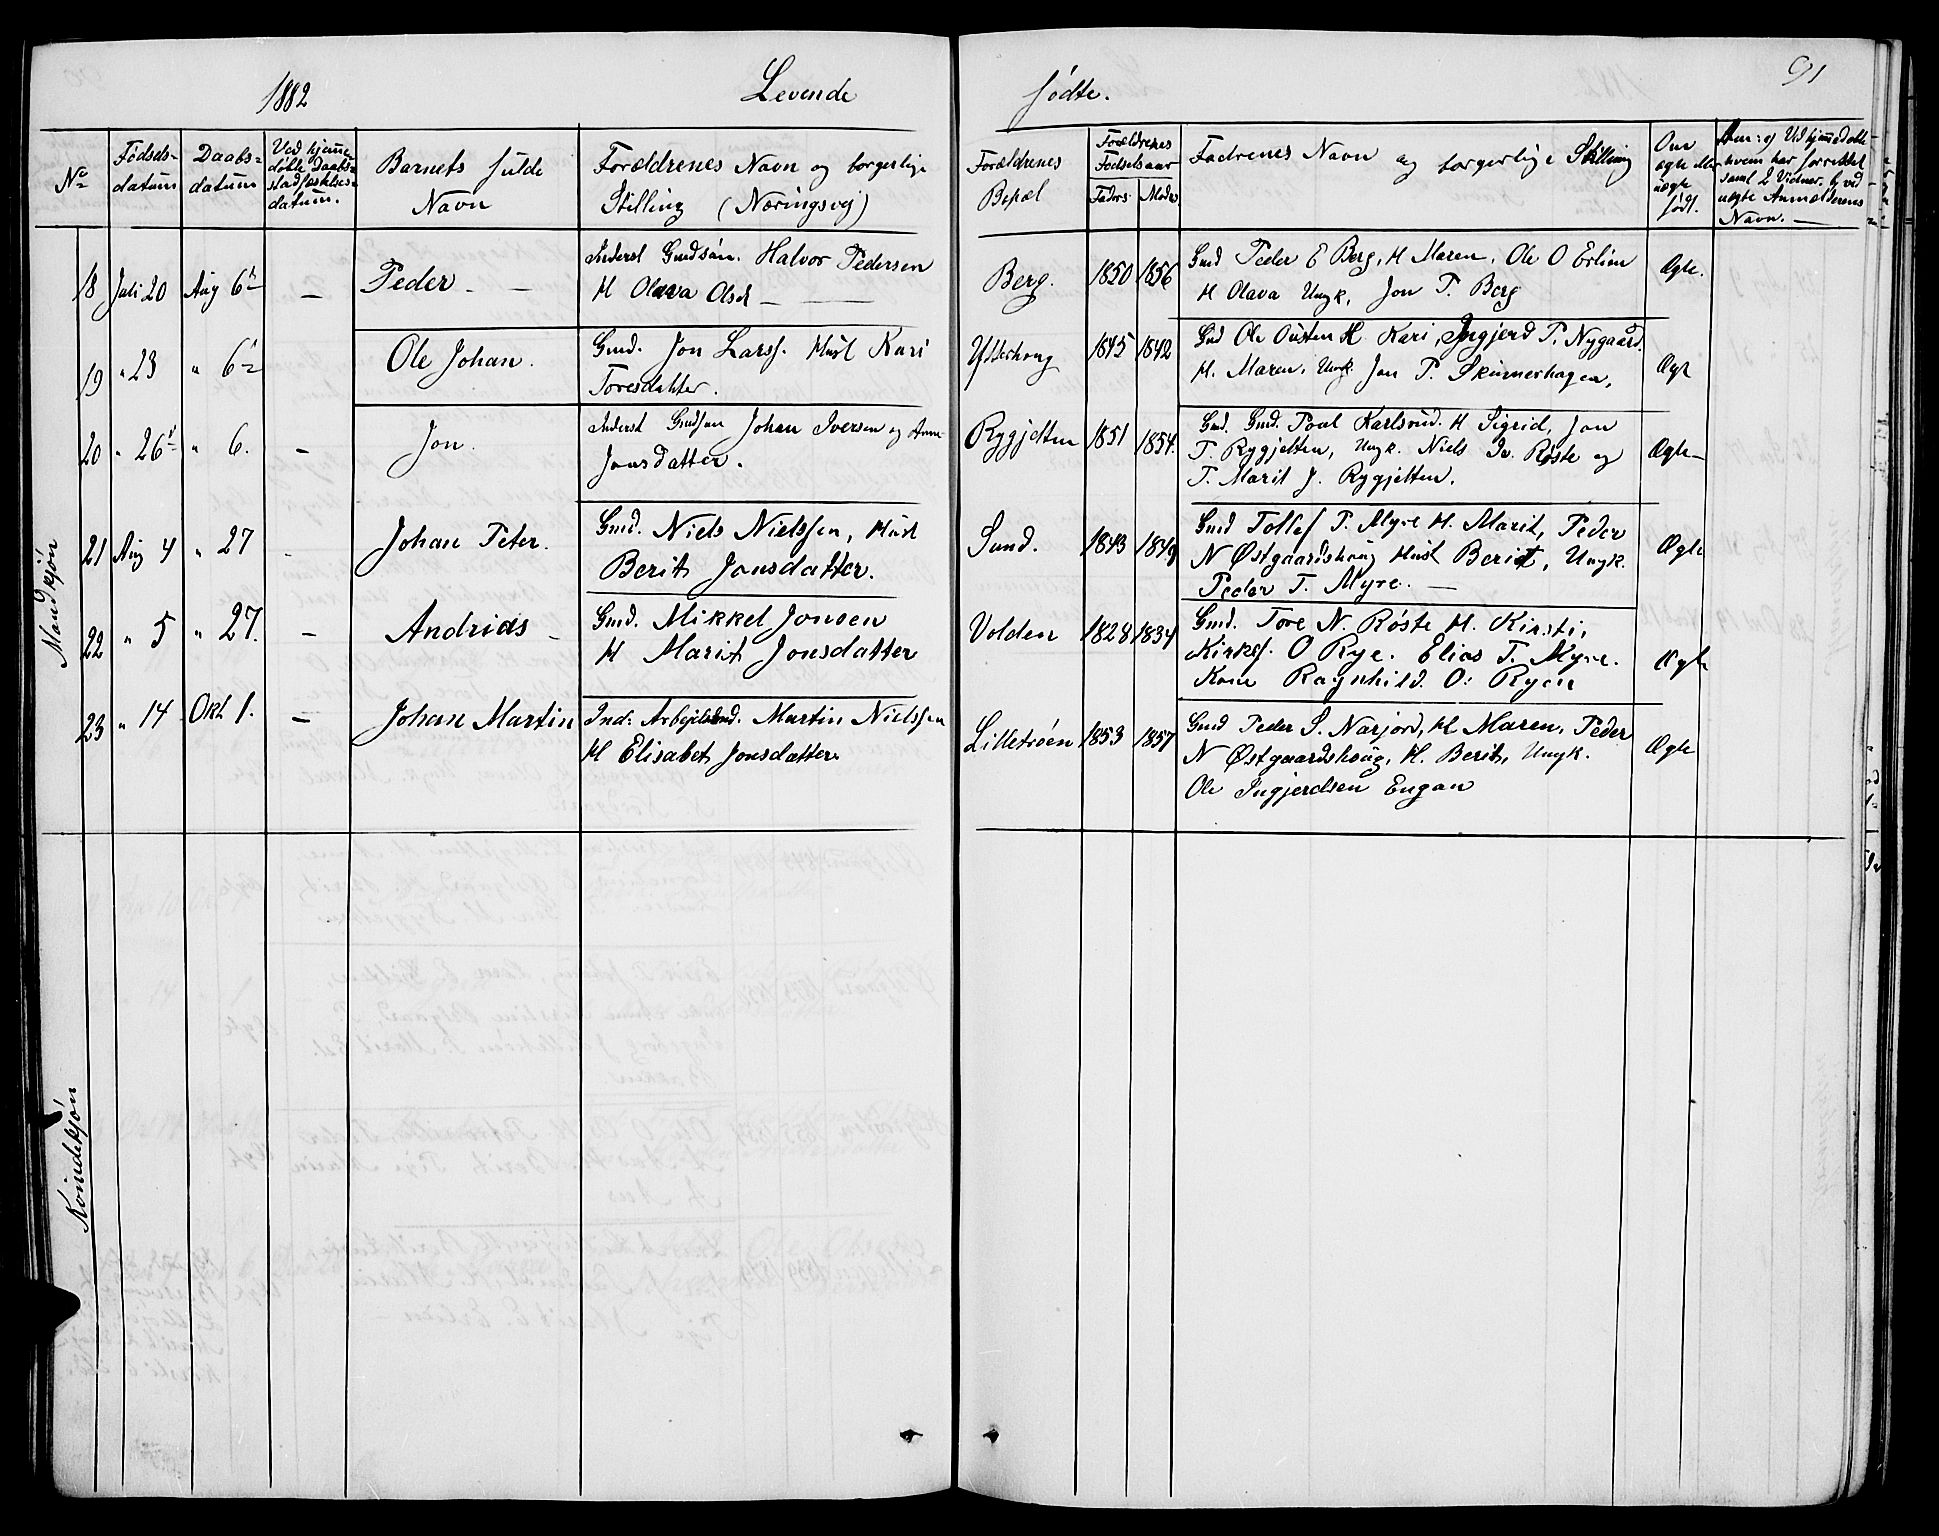 1882 Levende fødte. 91
No
Fødsels-
datum
Daabs-
datum
Ved hjemme-
døbte Daabs-
stadfæstelses-
datum.
Barnets fulde
Navn
Forældrenes Navn og borgerlige
Stilling (Næringsvej)
Forældrenes
Bopæl
Forældrenes
Fødselsaar
Faders Moders
Fadrenes Navn og borgerlige Stilling
Om
ægte eller
uægte
født.
Anm: of Ved hjemmedøbte
hvem har forrettet
samt 2 Vidner, & ved
uægte Anmelderens
Navn. —
Mandkjøn
18 Juli 20 Aug 6 — Peder — —
Inderst Gmdsøn. Halvor Pedersen
H Olava Olsd — —
Berg. 1850 1856
Gmd Peder E Berg, H Maren, Ole O Erlien
H Olava Ungk, Jon P. Berg
Ægte.
19 " 23 " 6 Ole Johan.
Gmd. Jon Larss. Hust Kari
Toresdatter.
Ytterhaug 1845 1842
Gmd Ole Østen H Kari, Ingjerd P. Nygaard.
H. Maren, Ungk. Jon P. Skinnerhagen,
Ægt
20 " 26 " 6. — Jon.
Inderst Gmdsøn Johan Iversen og Anne
Jonsdatter.
Rygjelten 1851 1854.
Gmd. Gmd. Poul Karlsrud. H Sigrid, Jon
T. Rygjelten, Ungk. Niels Iv. Røste og
P. Marit J. Rygjelten.
Ægte—
21 Aug 4 " 27 — Johan Peter.
Gmd. Niels Nielssen, Hust
Berit Jonsdatter.
Sund. 1843 1849
Gmd Tollef P. Myre H. Marit, Peder
N Østgaardshoug Hust Berit, Ungk.
Peder T. Myre. —
Ægte
22 " 5 " 27. — Andrias —
Gmd. Mikkel Jonsen
H Marit Jonsdatter
Volden 1828 1834
Gmd. Tore N. Røste H. Kirsti,
Kirkes. O Rye. Elias T. Myre.
Kone Ragnhild O: Ryen
Ægte
23 " 14 Okt 1. — Johan Martin
Ind. Martin Nielssen
H Elisabet Jonsdatter.
Lilletrøen 1853 1857
Gmd Peder S. Narjord, H Maren, Peder
N Østgaardshoug, H. Berit, Ungk.
Ole Ingjerdsen Engan
Ægte
Kvindekjøn